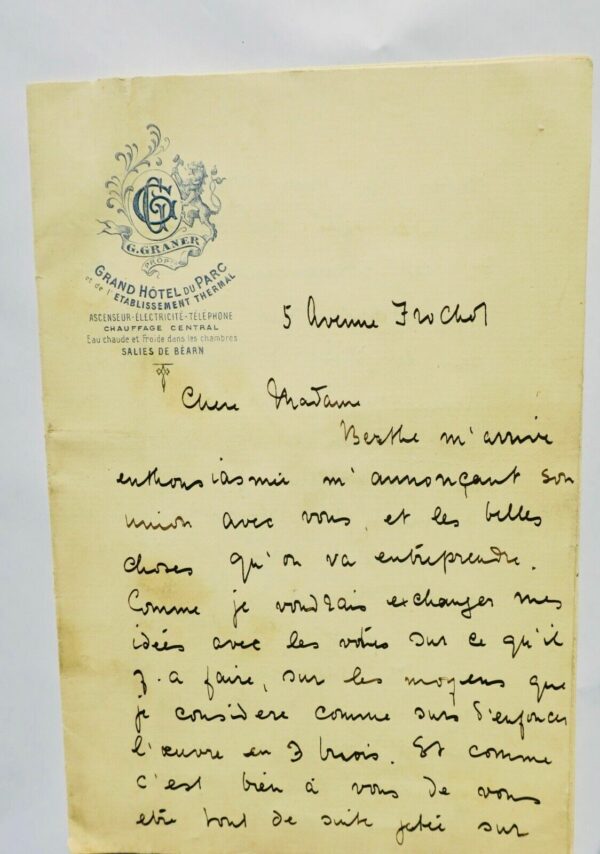 GG
G. GRANER
PROP.
GRAND HÔTEL DU PARC
et de l'ETABLISSEMENT THERMAL
ASCENSEUR-ÉLECTRICITÉ-TÉLÉPHONE
CHAUFFAGE CENTRAL
Eau chaude et Froide dans les chambres
SALIES DE BÉARN
5 Avenue Frochot
Chere Madame
Berthe m'arrive
enthousiasmée m'annonçant son
union avec vous, et les belles
choses qu'on va entreprendre.
Comme je voudrais exchanger mes
idées avec les votres sur ce qu'il
y a faire, sur les moyens que
je considere comme surs d'enfoncer
l'œuvre en 3 . Et comme
c'est bien à vous de vous
etre tout de suite jetée sur